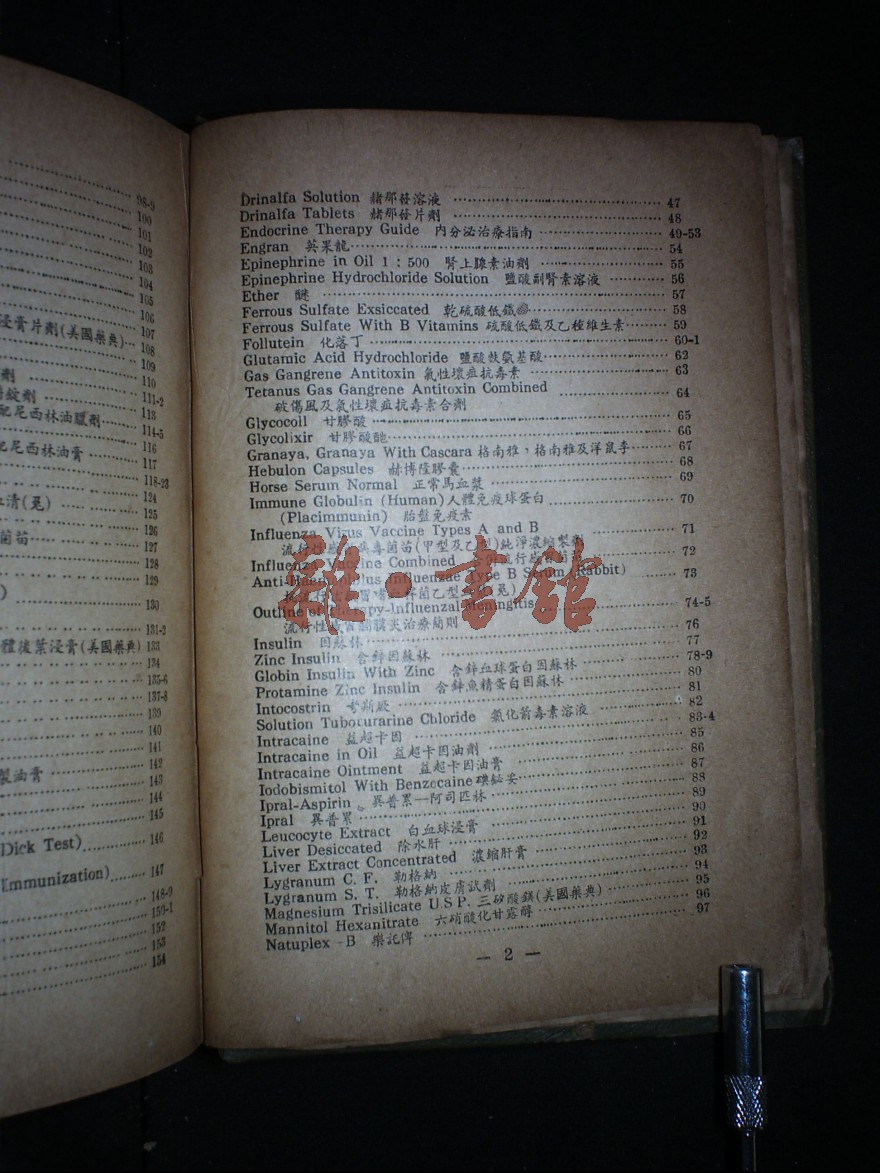 98-9
100
101
102
103
104
105
106
107
浸膏片劑(美國藥典) 108
109
劑 110
錠劑 111-2
113
配尼西林油臘劑 114-5
116
配尼西林油膏 117
118-23
124
清(兎) 125
126
菌苗 127
128
129
) 130
131-2
體後葉浸膏(美國藥典) 133
134
135-6
137-8
139
140
141
142
製油膏 143
144
145
Dick Test) 146
Immunization) 147
148-9
150-1
152
153
154
Drinalfa Solution 赭那發溶液 47
Drinalfa Tablets 赭那發片劑 48
Endocrine Therapy Guide 內分泌治療指南 49-53
Engran 英果龍 54
Epinephrine in Oil 1 : 500 腎上腺素油劑 55
Epinephrine Hydrochloride Solution 鹽酸副腎素溶液 56
Ether 醚 57
Ferrous Sulfate Exsiccated 乾硫酸低鐵 58
Ferrous Sulfate With B Vitamins 硫酸低鐵及乙種維生素 59
Follutein 化落丁 60-1
Glutamic Acid Hydrochloride 鹽酸麩氨基酸 62
Gas Gangrene Antitoxin 氣性壞疽抗毒素 63
Tetanus Gas Gangrene Antitoxin Combined 64
破傷風及氣性壞疽抗毒素合劑
Glycocoll 甘膠酸 65
Glycolixir 甘膠酸 66
Granaya, Granaya With Cascara 格南雅，格南雅及洋鼠李 67
Hebulon Capsules 赫博隆膠囊 68
Horse Serum Normal 正常馬血漿 69
Immune Globulin (Human) 人體免疫球蛋白 70
(Placimmunin) 胎盤免疫素
Influenza Virus Vaccine Types A and B 71
流行性感 病毒菌苗(甲型及乙型)純淨濃縮製劑
Influenza Vaccine Combined 流行 菌 72
Anti-Haemophilus Influenzae Type B Serum (Rabbit) 73
菌乙型 兎)
Outline of Therapy-Influenzal Meningitis 74-5
流行性 腦膜炎治療簡則
Insulin 因蘇林 76
Zinc Insulin 含鋅因蘇林 77
Globin Insulin With Zinc 含鋅血球蛋白因蘇林 78-9
Protamine Zinc Insulin 含鋅魚精蛋白因蘇林 80
Intocostrin 81
Solution Tubocurarine Chloride 氯化箭毒素溶液 82
Intracaine 益超卡因 83-4
Intracaine in Oil 益超卡因油劑 85
Intracaine Ointment 益超卡因油膏 86
Iodobismitol With Benzocaine 碘鉍妥 87
Ipral-Aspirin 異普累—阿司匹林 88
Ipral 異普累 89
Leucocyte Extract 白血球浸膏 90
Liver Desiccated 除水肝 91
Liver Extract Concentrated 濃縮肝膏 92
Lygranum C. F. 勒格納 93
Lygranum S. T. 勒格納皮膚試劑 94
Magnesium Trisilicate U.S.P. 三矽酸鎂(美國藥典) 95
Mannitol Hexanitrate 六硝酸化甘露醇 96
Natuplex -B 樂託俾 97
— 2 —
雜·書館